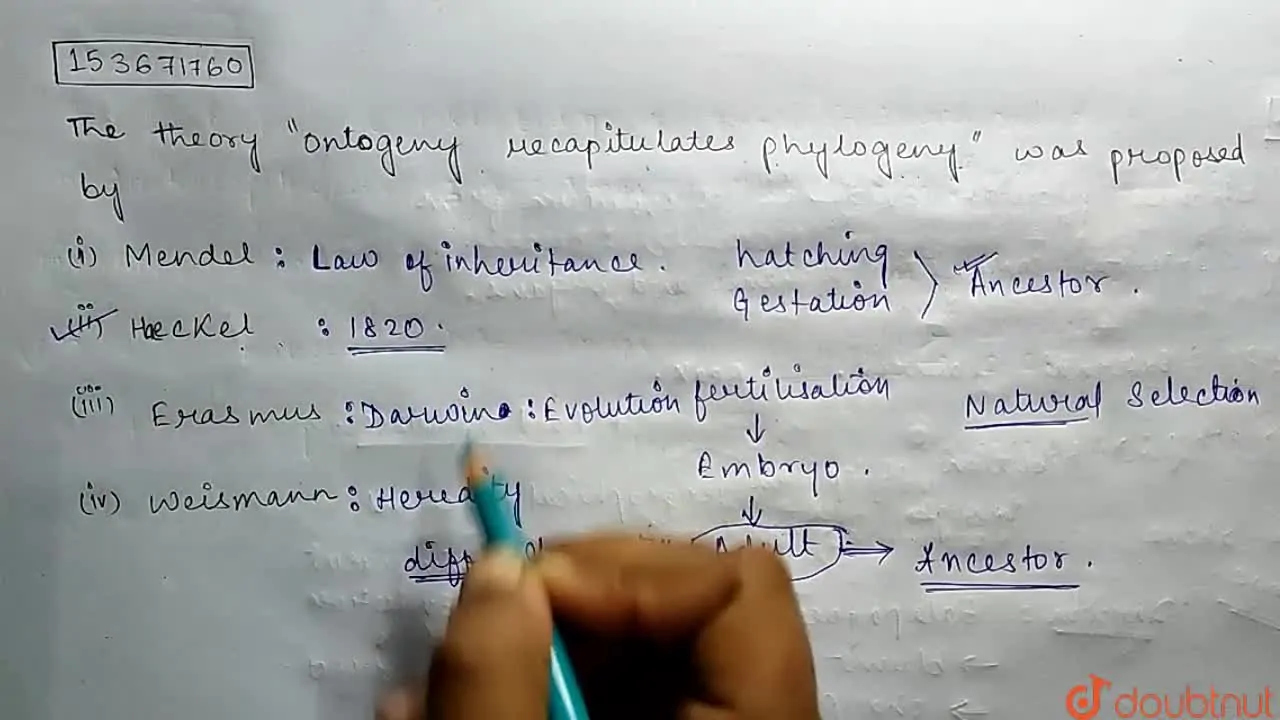 153671760
The theory "ontogeny recapitulates phylogeny" was proposed
by
(i) Mendel : Law of inheritance.
hatching
Gestation
Ancestor.
(ii) Haeckel : 1820.
(iii) Erasmus : Darwin : Evolution
fertilisation
Natural Selection
↓
Embryo.
(iv) Weismann : Heredity
↓
Adult ⇒ Ancestor.
doubtnut